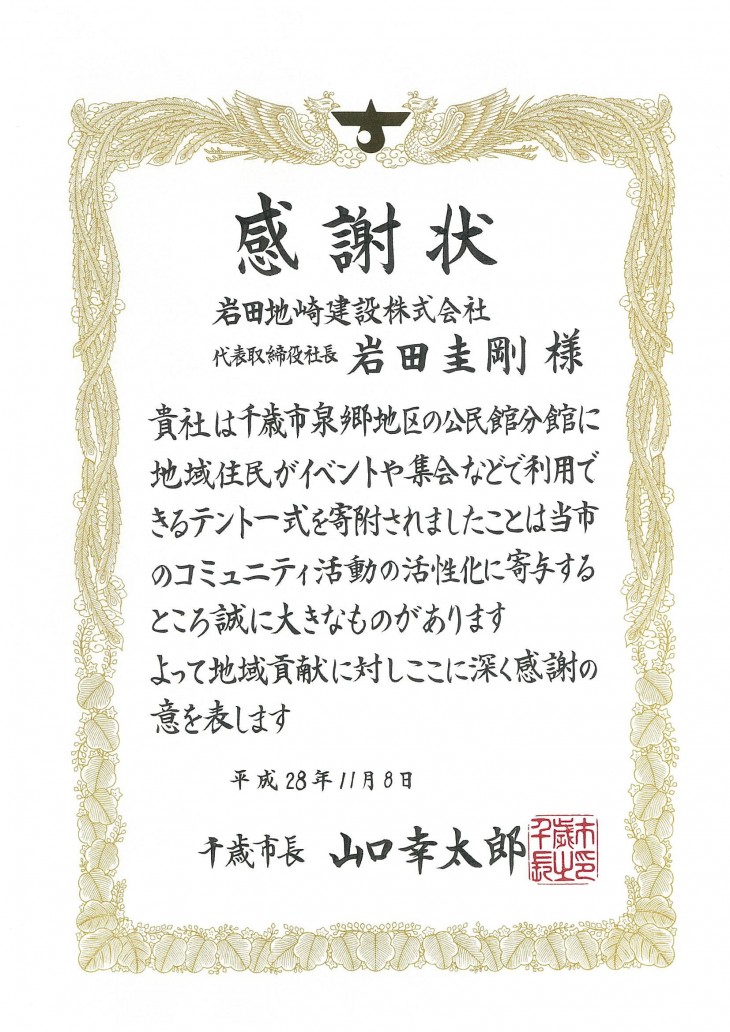 感謝状
岩田地崎建設株式会社
代表取締役社長 岩田圭剛 様
貴社は千歳市泉郷地区の公民館分館に
地域住民がイベントや集会などで利用で
きるテント一式を寄附されましたことは当市
のコミュニティ活動の活性化に寄与する
ところ誠に大きなものがあります
よって地域貢献に対しここに深く感謝の
意を表します
平成28年11月8日
千歳市長 山口幸太郎
千歳市長之印